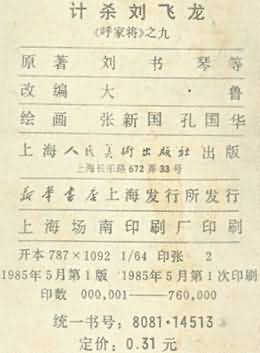 计杀刘飞龙
《呼家将》之九
原著 刘书琴等
改编 大鲁
绘画 张新国 孔国华
上海人民美术出版社出版
上海长乐路672弄33号
新华书店上海发行所发行
上海场南印刷厂印刷
开本787×1092 1/64 印张 2
1985年5月第1版 1985年5月第1次印刷
印数 000,001——760,000
统一书号:8081·14513
定价:0.31元